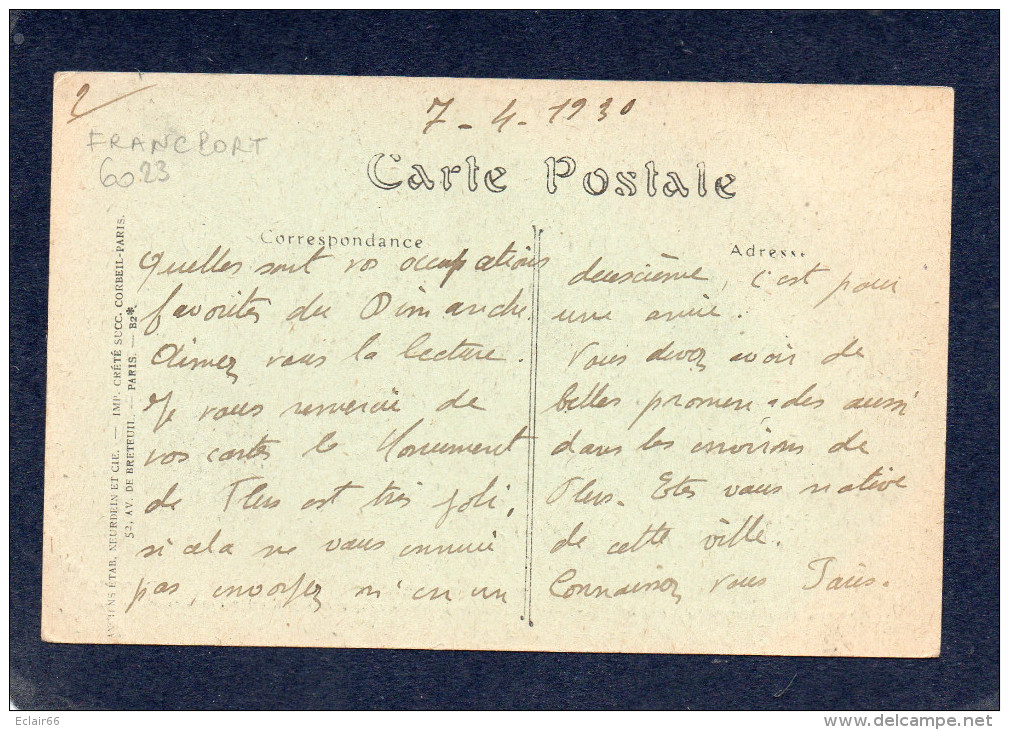 2
7-4-1930
FRANCPORT
6023
Carte Postale
Correspondance
Adresse
ANCIENS ÉTAB. NEURDEIN ET CIE. — IMP. CRÉTÉ SUCC. CORBEIL-PARIS.
52, AV. DE BRETEUIL. — PARIS. — B2*.
Quelles sont vos occupations
favorites du Dimanche.
Aimez vous la lecture.
Je vous remercie de
vos cartes le Monument
de Flers est très joli,
si cela ne vous ennuie
pas, envoyez m'en un
deuxième, c'est pour
une amie.
Vous devez avoir de
belles promenades aussi
dans les environs de
Flers. Etes vous native
de cette ville.
Connaissez vous Paris.
Eclair66
www.delcampe.net